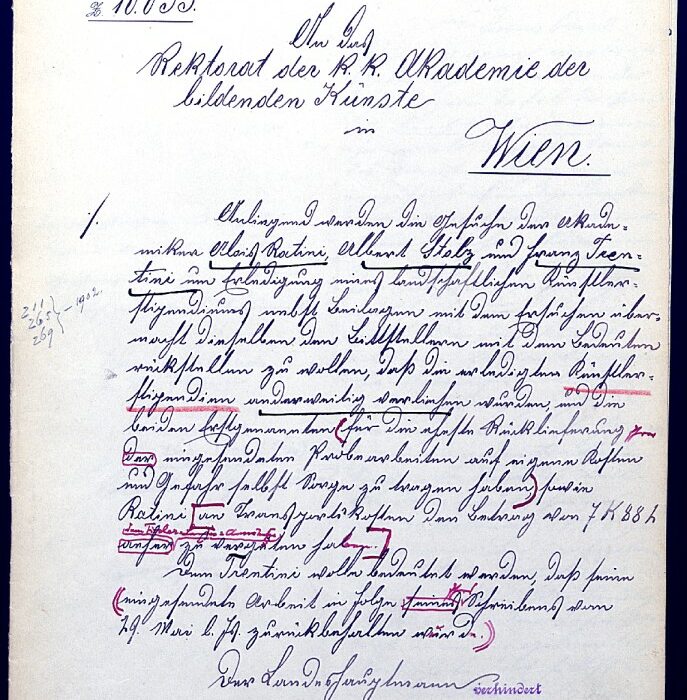 Z 10.033.
An das
Rektorat der k. k. Akademie der
bildenden Künste
in
Wien.
./.
Anliegend werden die Gesuche der Akade-
miker Alois Ratini, Albert Stolz und Franz Tren-
tini um Erledigung eines landschaftlichen Künstler-
stipendiums nebst Beilagen mit dem Ersuchen über-
macht dieselben den Bittstellern mit dem Bedeuten
rückstellen zu wollen, daß die erledigten Künstler-
stipendien anderweitig verliehen wurden, und die
beiden Erstgenannten (für die eheste Rücklieferung
der eingesendeten Probearbeiten auf eigene Kosten
und Gefahr selbst Sorge zu tragen haben,) sowie
Ratini an Transportskosten den Betrag von 7 K 88 h
anher zu vergüten haben.
Dem Trentini wolle bedeutet werden, daß seine
(eingesendete Arbeit in Folge seines Schreibens vom
29. Mai l. Js. zurückbehalten wurde.)
Der Landeshauptmann verhindert
211
265 } -1902
269